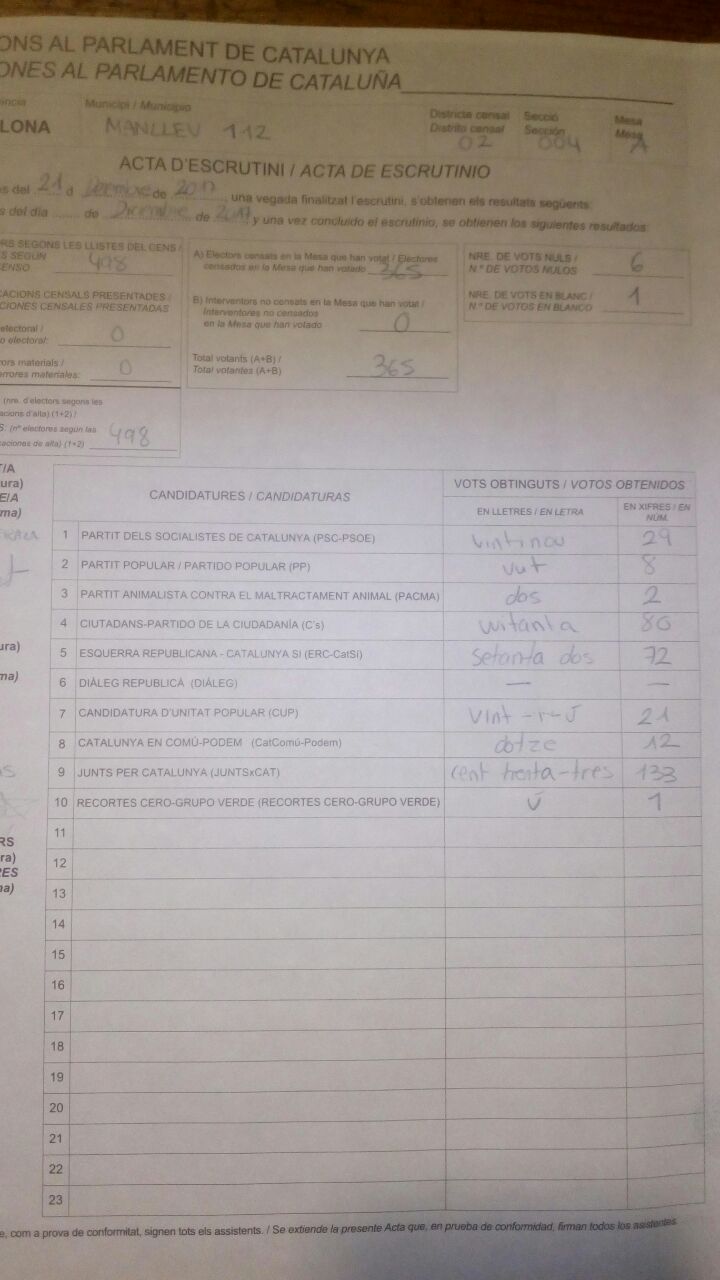 ONS AL PARLAMENT DE CATALUNYA
ONES AL PARLAMENTO DE CATALUÑA
Municipi / Municipio
Districte censal Secció Mesa
Distrito censal Sección Mesa
LONA MANLLEU 112 02 004 A
ACTA D'ESCRUTINI / ACTA DE ESCRUTINIO
s del 21 d Desembre de 2017, una vegada finalitzat l'escrutini, s'obtenen els resultats següents:
s del día ....... de Diciembre de 2017 y una vez concluido el escrutinio, se obtienen los siguientes resultados:
RS SEGONS LES LLISTES DEL CENS /
S SEGÚN
ENSO 498
CACIONS CENSALS PRESENTADES /
CIONES CENSALES PRESENTADAS
electoral /
o electoral: 0
rors materials /
errores materiales: 0
(nre. d'electors segons les
acions d'alta) (1+2) /
S. (nº electores según las
caciones de alta) (1+2) 498
A) Electors censats en la Mesa que han votat / Electores
censados en la Mesa que han votado 365
B) Interventors no censats en la Mesa que han votat /
Interventores no censados
en la Mesa que han votado 0
Total votants (A+B) /
Total votantes (A+B) 365
NRE. DE VOTS NULS /
N.º DE VOTOS NULOS 6
NRE. DE VOTS EN BLANC /
N.º DE VOTOS EN BLANCO 1
T/A
ura)
E/A
ma)
ura)
ma)
RS
ra)
RES
na)
CANDIDATURES / CANDIDATURAS
VOTS OBTINGUTS / VOTOS OBTENIDOS
EN LLETRES / EN LETRA
EN XIFRES / EN
NÚM.
1 PARTIT DELS SOCIALISTES DE CATALUNYA (PSC-PSOE) vintinou 29
2 PARTIT POPULAR / PARTIDO POPULAR (PP) vuit 8
3 PARTIT ANIMALISTA CONTRA EL MALTRACTAMENT ANIMAL (PACMA) dos 2
4 CIUTADANS-PARTIDO DE LA CIUDADANÍA (C's) vuitanta 80
5 ESQUERRA REPUBLICANA - CATALUNYA SÍ (ERC-CatSí) setanta dos 72
6 DIÀLEG REPUBLICÀ (DIÀLEG) — —
7 CANDIDATURA D'UNITAT POPULAR (CUP) vint-i-ú 21
8 CATALUNYA EN COMÚ-PODEM (CatComú-Podem) dotze 12
9 JUNTS PER CATALUNYA (JUNTSxCAT) cent trenta-tres 133
10 RECORTES CERO-GRUPO VERDE (RECORTES CERO-GRUPO VERDE) ú 1
11
12
13
14
15
16
17
18
19
20
21
22
23
e, com a prova de conformitat, signen tots els assistents. / Se extiende la presente Acta que, en prueba de conformidad, firman todos los asistentes.